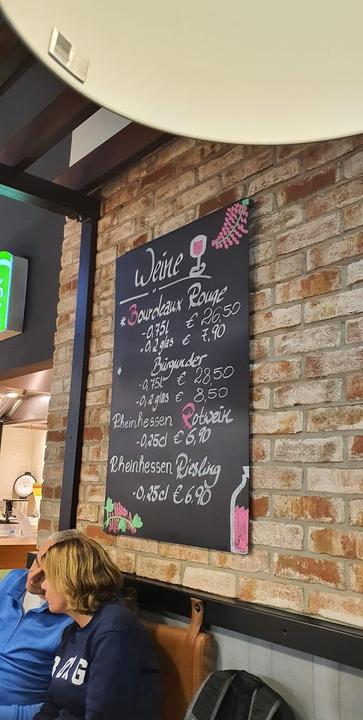 Weine
* Bourdeaux Rouge
-0,75l € 26,50
-0,2 glas € 7,90
* Bürgunder
-0,75l € 28,50
-0,2 glas € 8,50
Rheinhessen Rotwein
-0,25cl € 6,90
Rheinhessen Riesling
-0,25cl € 6.90